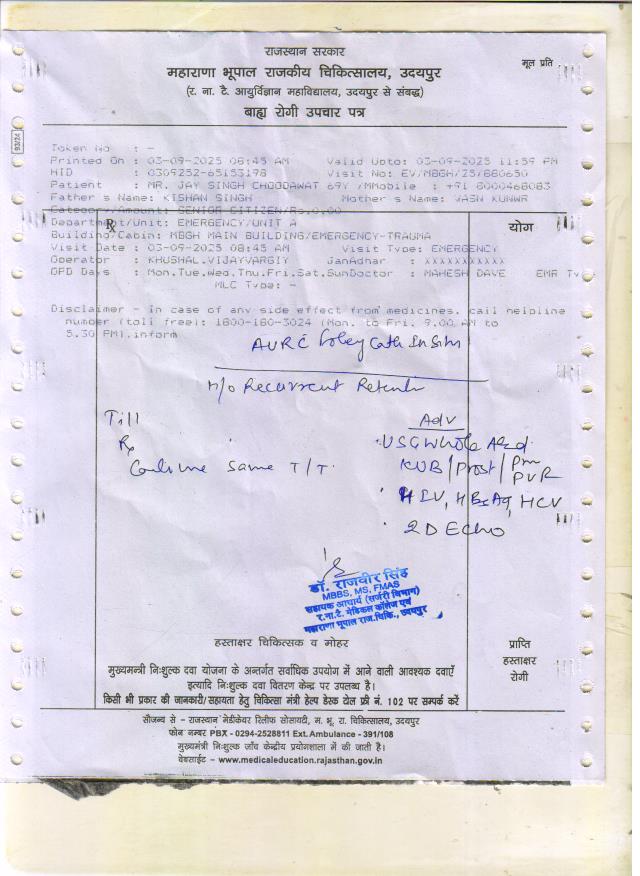 राजस्थान सरकार
मूल प्रति
महाराणा भूपाल राजकीय चिकित्सालय, उदयपुर
(र. ना. टै. आयुर्विज्ञान महाविद्यालय, उदयपुर से संबद्ध)
बाह्य रोगी उपचार पत्र
93/24
Token No : -
Printed On : 03-09-2025 08:45 AM Valid Upto: 03-09-2025 11:59 PM
HID : 0309252-65153198 Visit No: EV/MBGH/25/660650
Patient : MR. JAY SINGH CHOODAWAT 69Y /MMobile : +91 8000468083
Father's Name: KISHAN SINGH Mother's Name: JASN KUNWR
Category/Amount: SENIOR CITIZEN/Rs.0.00
Department/Unit: EMERGENCY/UNIT A
Rx
योग
Building/Cabin: MBGH MAIN BUILDING/EMERGENCY-TRAUMA
Visit Date : 03-09-2025 08:45 AM Visit Type: EMERGENCY
Operator : KHUSHAL.VIJAYVARGIY JanAdhar : XXXXXXXXXXX
OPD Days : Mon.Tue.Wed.Thu.Fri.Sat.SunDoctor : MAHESH DAVE EMR Ty
MLC Type: -
Disclaimer - In case of any side effect from medicines, call helpline
number (toll free): 1800-180-3024 (Mon. to Fri. 9.00 AM to
5.30 PM).inform
AURC Foley Cath In Situ
H/o Recurrent Retention
Till
Adv
Rx
USG Whole Abd.
Continue Same T/T.
KUB / Prost / Pre
PVR
HIV, HBsAg, HCV
2D Echo
डॉ. राजवीर सिंह
MBBS, MS, FMAS
सहायक आचार्य (सर्जरी विभाग)
र.ना.टै. मेडिकल कॉलेज एवं
महाराणा भूपाल राज.चिकि., उदयपुर
हस्ताक्षर चिकित्सक व मोहर
प्राप्ति
हस्ताक्षर
रोगी
मुख्यमन्त्री निःशुल्क दवा योजना के अन्तर्गत सर्वाधिक उपयोग में आने वाली आवश्यक दवाएँ
इत्यादि निःशुल्क दवा वितरण केन्द्र पर उपलब्ध है।
किसी भी प्रकार की जानकारी/सहायता हेतु चिकित्सा मंत्री हेल्प डेस्क टोल फ्री नं. 102 पर सम्पर्क करें
सौजन्य से - राजस्थान मेडीकेयर रिलीफ सोसायटी, म. भू. रा. चिकित्सालय, उदयपुर
फोन नम्बर PBX - 0294-2528811 Ext. Ambulance - 391/108
मुख्यमंत्री निःशुल्क जाँच केन्द्रीय प्रयोगशाला में की जाती है।
वेबसाईट - www.medicaleducation.rajasthan.gov.in